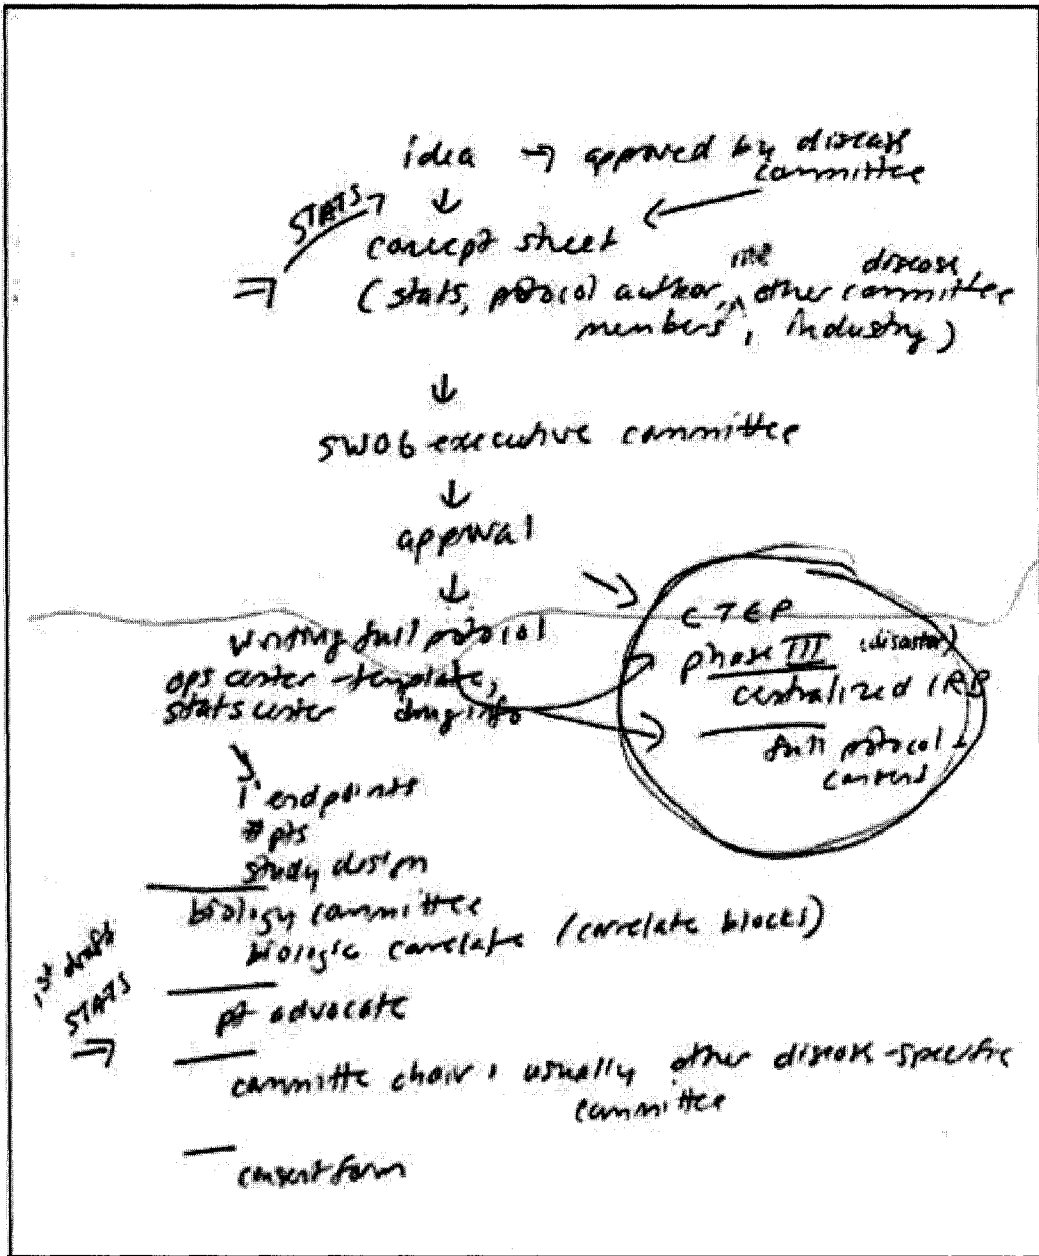 idea → approved by disease
committee
STATS
concept sheet
(stats, protocol author, other disease
committee
members, industry)
SWOG executive committee
approval
writing full protocol
ops center - template,
stats center drug info
CTEP
phase III (disaster)
centralized IRB
full protocol +
consent
1° endpoints
# pts
study design
biology committee
biologic correlate (correlate blocks)
1st draft
STATS
pt advocate
committe chair, usually other disease-specific
committee
consent form